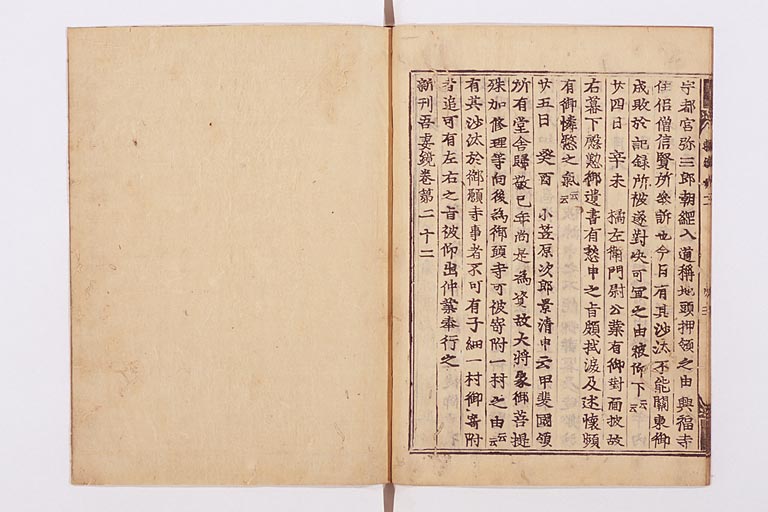 宇都宮弥三郎朝經入道稱地頭押領之由興福寺
住侶僧信賢所參訴也今日有其沙汰不能關東御
成敗於記録所被遂對决可宜之由被仰下云云
廿四日　辛未　橘左衛門尉公業有御對面披故
右幕下慇懃御遺書有愁申之旨頗拭淚及述懷頗
有御憐愍之氣云云
廿五日　癸酉　小笠原次郎景清申云甲斐國領
所有堂舎歸敬已年尚是為資故大将家御菩提
殊加修理等向後為御願寺可被寄附一村之由云云
有其沙汰於御願寺事者不可有子細一村御寄附
者追可有左右之旨被仰出仲業奉行之
新刊吾妻鏡巻第二十二